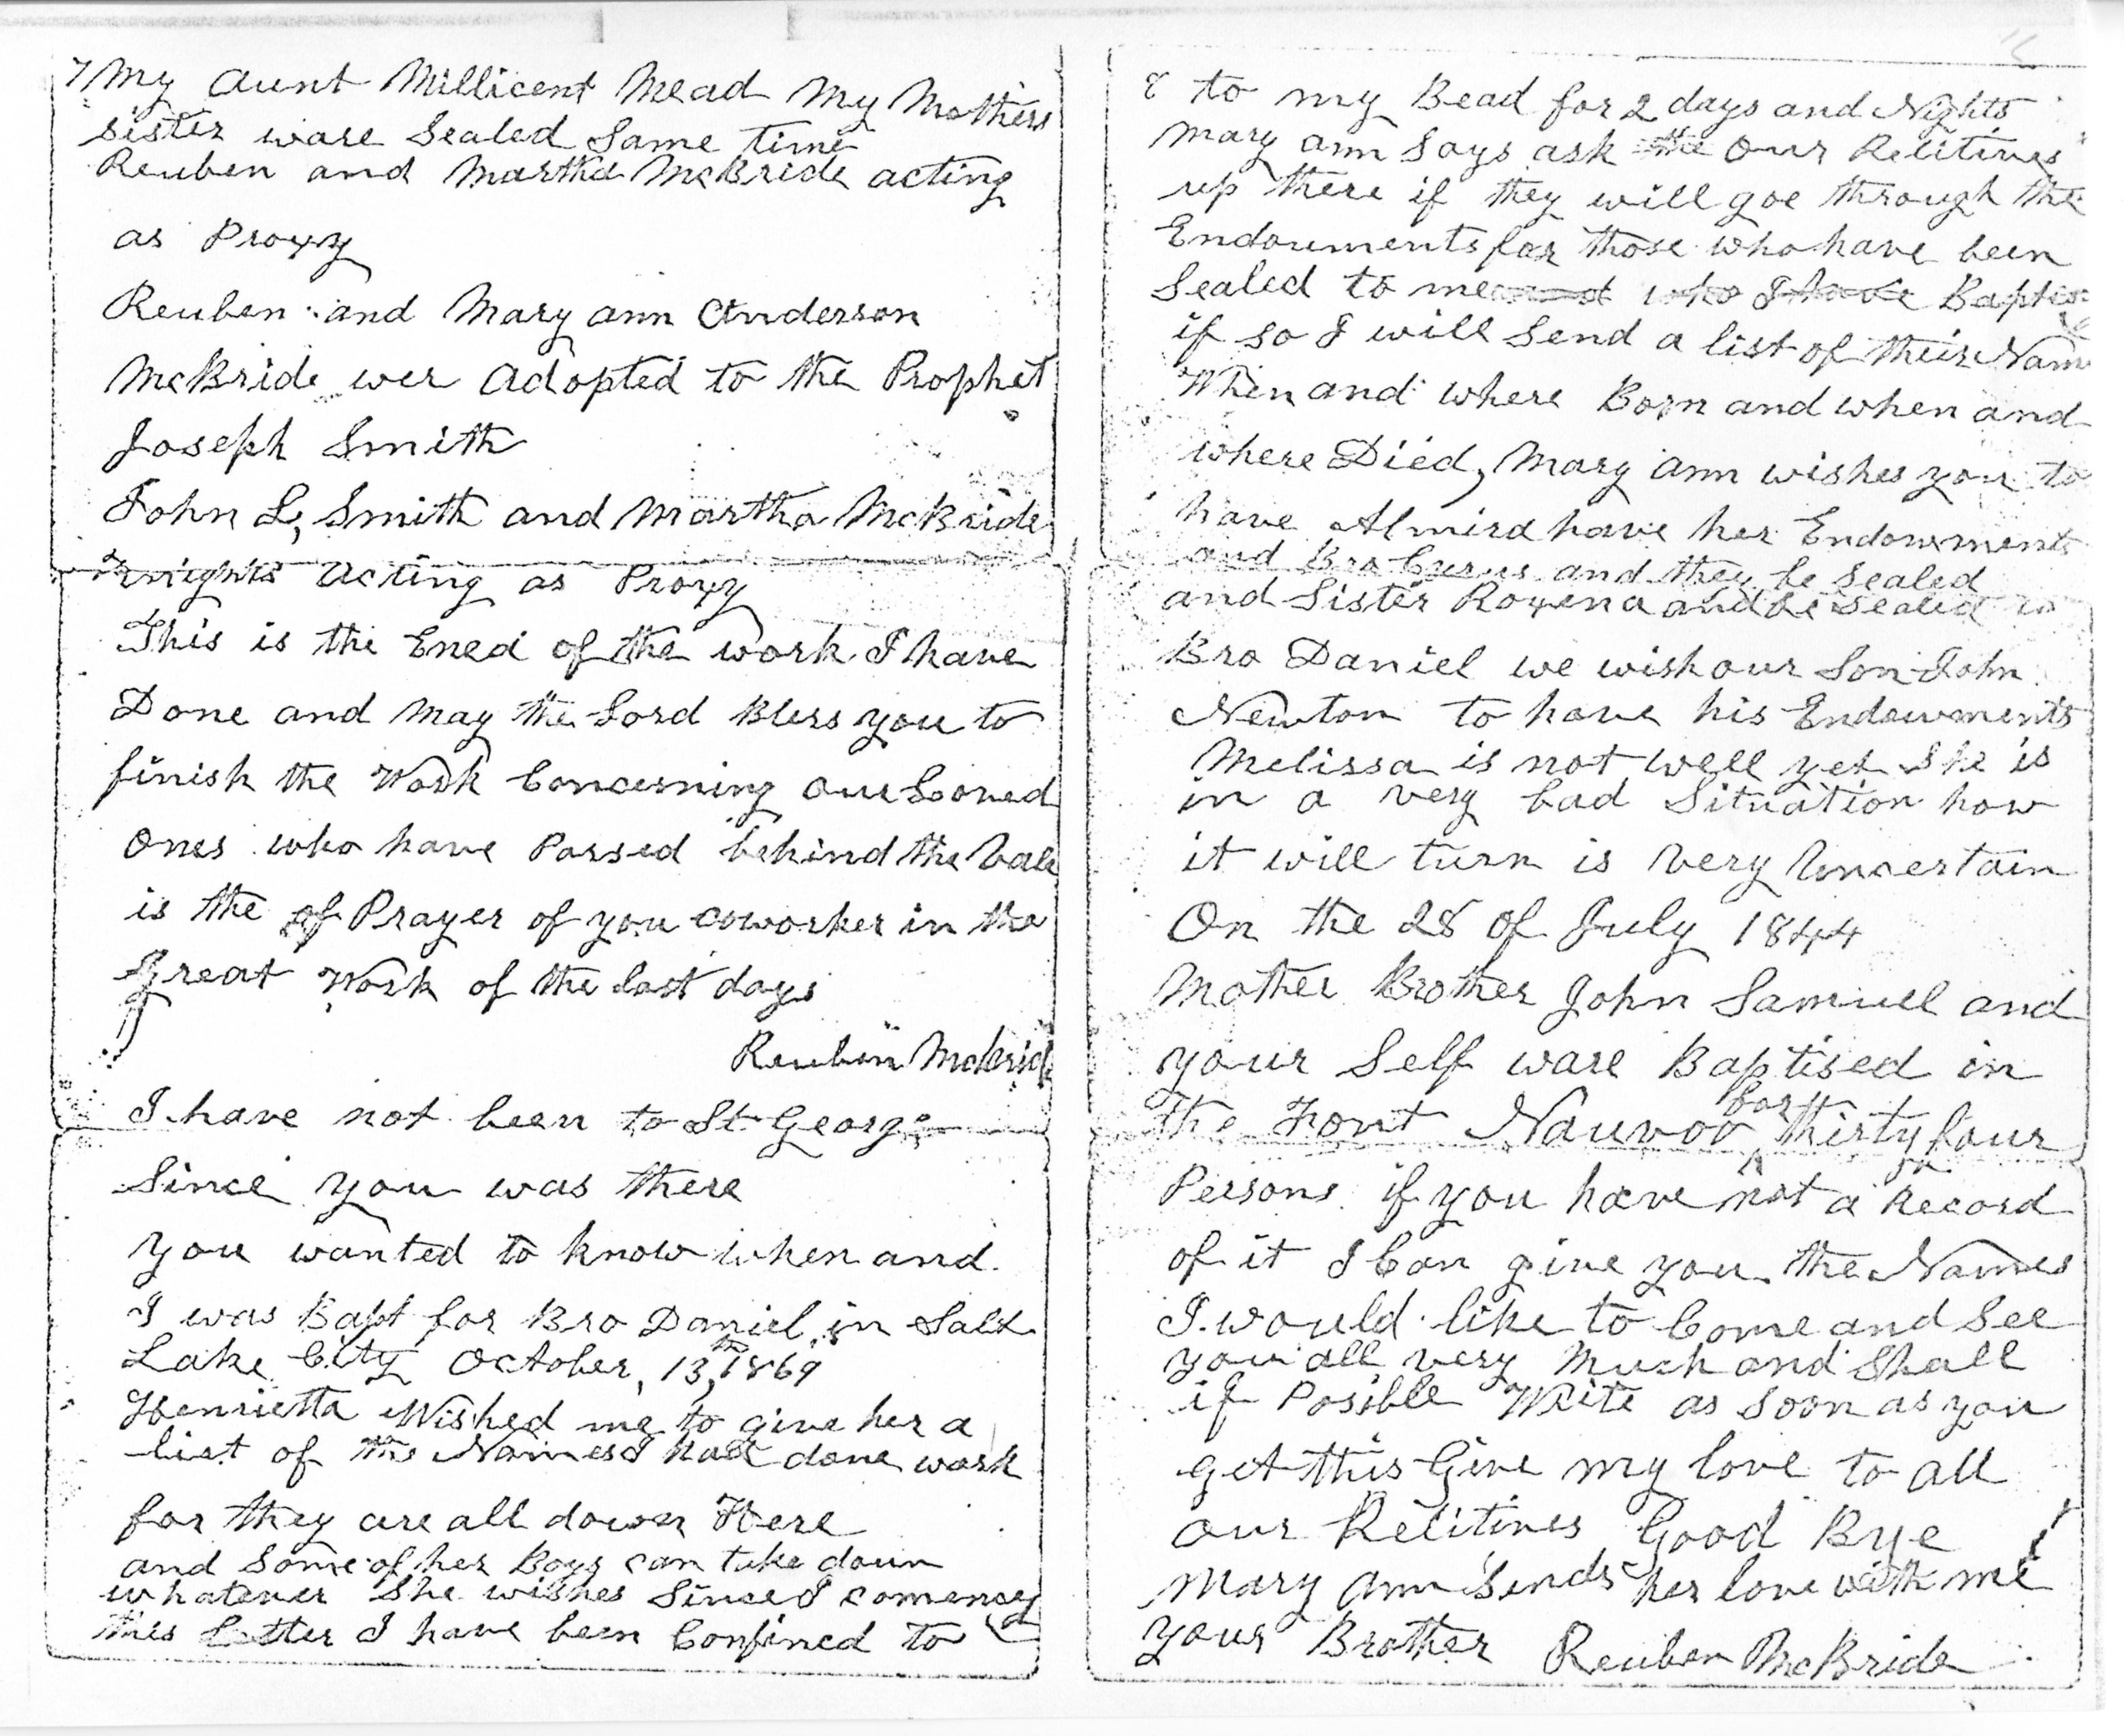 7 My Aunt Millicent Mead My Mothers
sister ware Sealed Same time
Reuben and Martha McBride acting
as Proxy
Reuben and Mary ann Anderson
McBride wer Adopted to the Prophet
Joseph Smith
John L, Smith and Martha McBride
Knights Acting as Proxy
This is the Ened of the work I have
Done and May the Lord Bless you to
finish the Work Concerning our Loved
Ones who have Passed behind the Vale
is the of Prayer of you coworker in the
Great Work of the Last days
Reuben McBride
I have not been to St George
Since you was there
You wanted to know when and
I was Bapt for Bro Daniel in Salt
Lake City October, 13th, 1869
Henrietta Wished me to give her a
list of the Names I had done work
for they are all down Here
and Some of her Boys can take down
whatever She wishes Since I comenced
this Letter I have been Confined to
8 to my Bead for 2 days and Nights
Mary ann Says ask the Our Relitives
up there if they will goe through the
Endouments for those who have been
Sealed to me and who I have
if so I will Send a list of their Nam
When and where Born and when and
where Died, Mary Ann wishes you to
have Almira have her Endowments
and Bro Cyrus and they be Sealed
and Sister Roxena and be Sealed to
Bro Daniel we wish our Son John
Newton to have his Endowments
Melissa is not well yet She is
in a very bad Situation how
it will turn is Very Uncertain
On the 28 of July 1844
Mother Brother John Samuel and
your Self ware Baptised in
the Font Nauvoo for thirty four
Persons if you have not a Record
of it I Can give you the Names
I would like to Come and See
you all very Much and Shall
if Posible Write as Soon as you
get this Give my love to all
our Relitives Good Bye
Mary Ann Sends her love with me
your Brother Reuben McBride